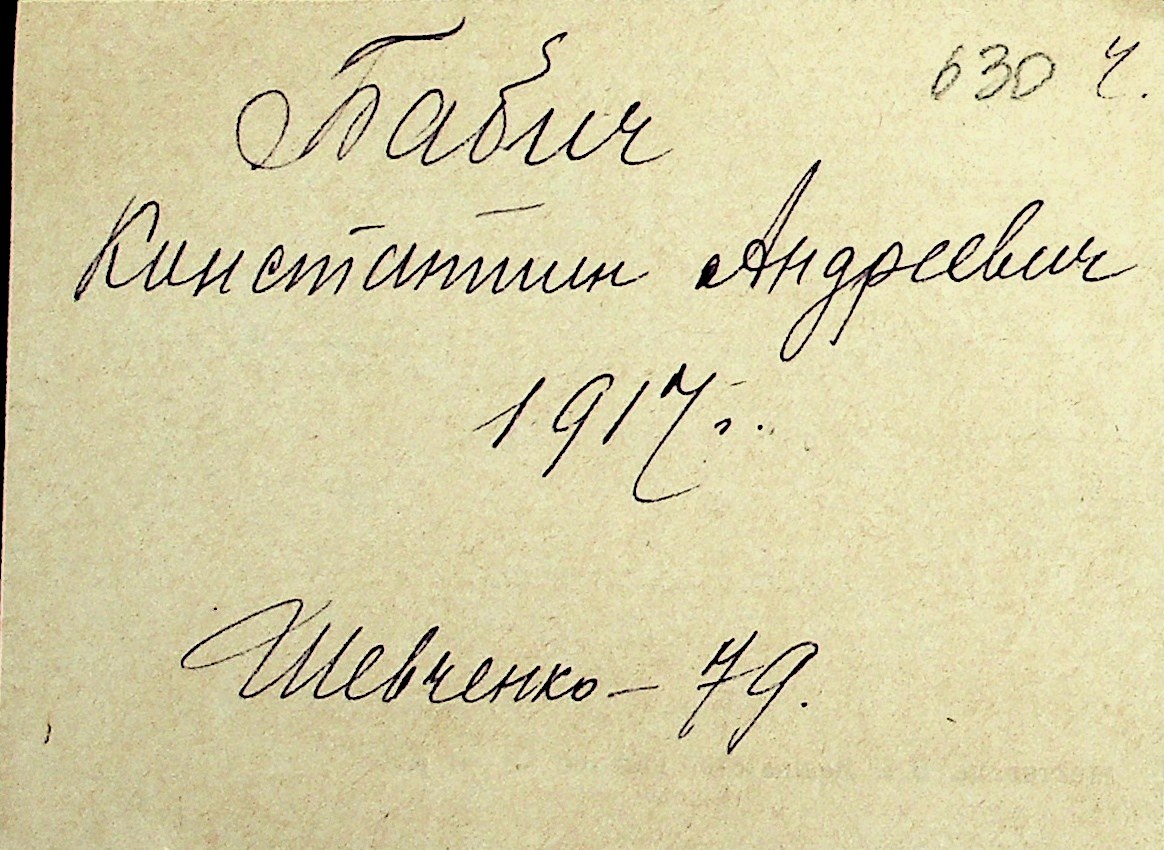 630 ч.
Бабич
Константин Андреевич
1917 г.
Шевченко – 79.